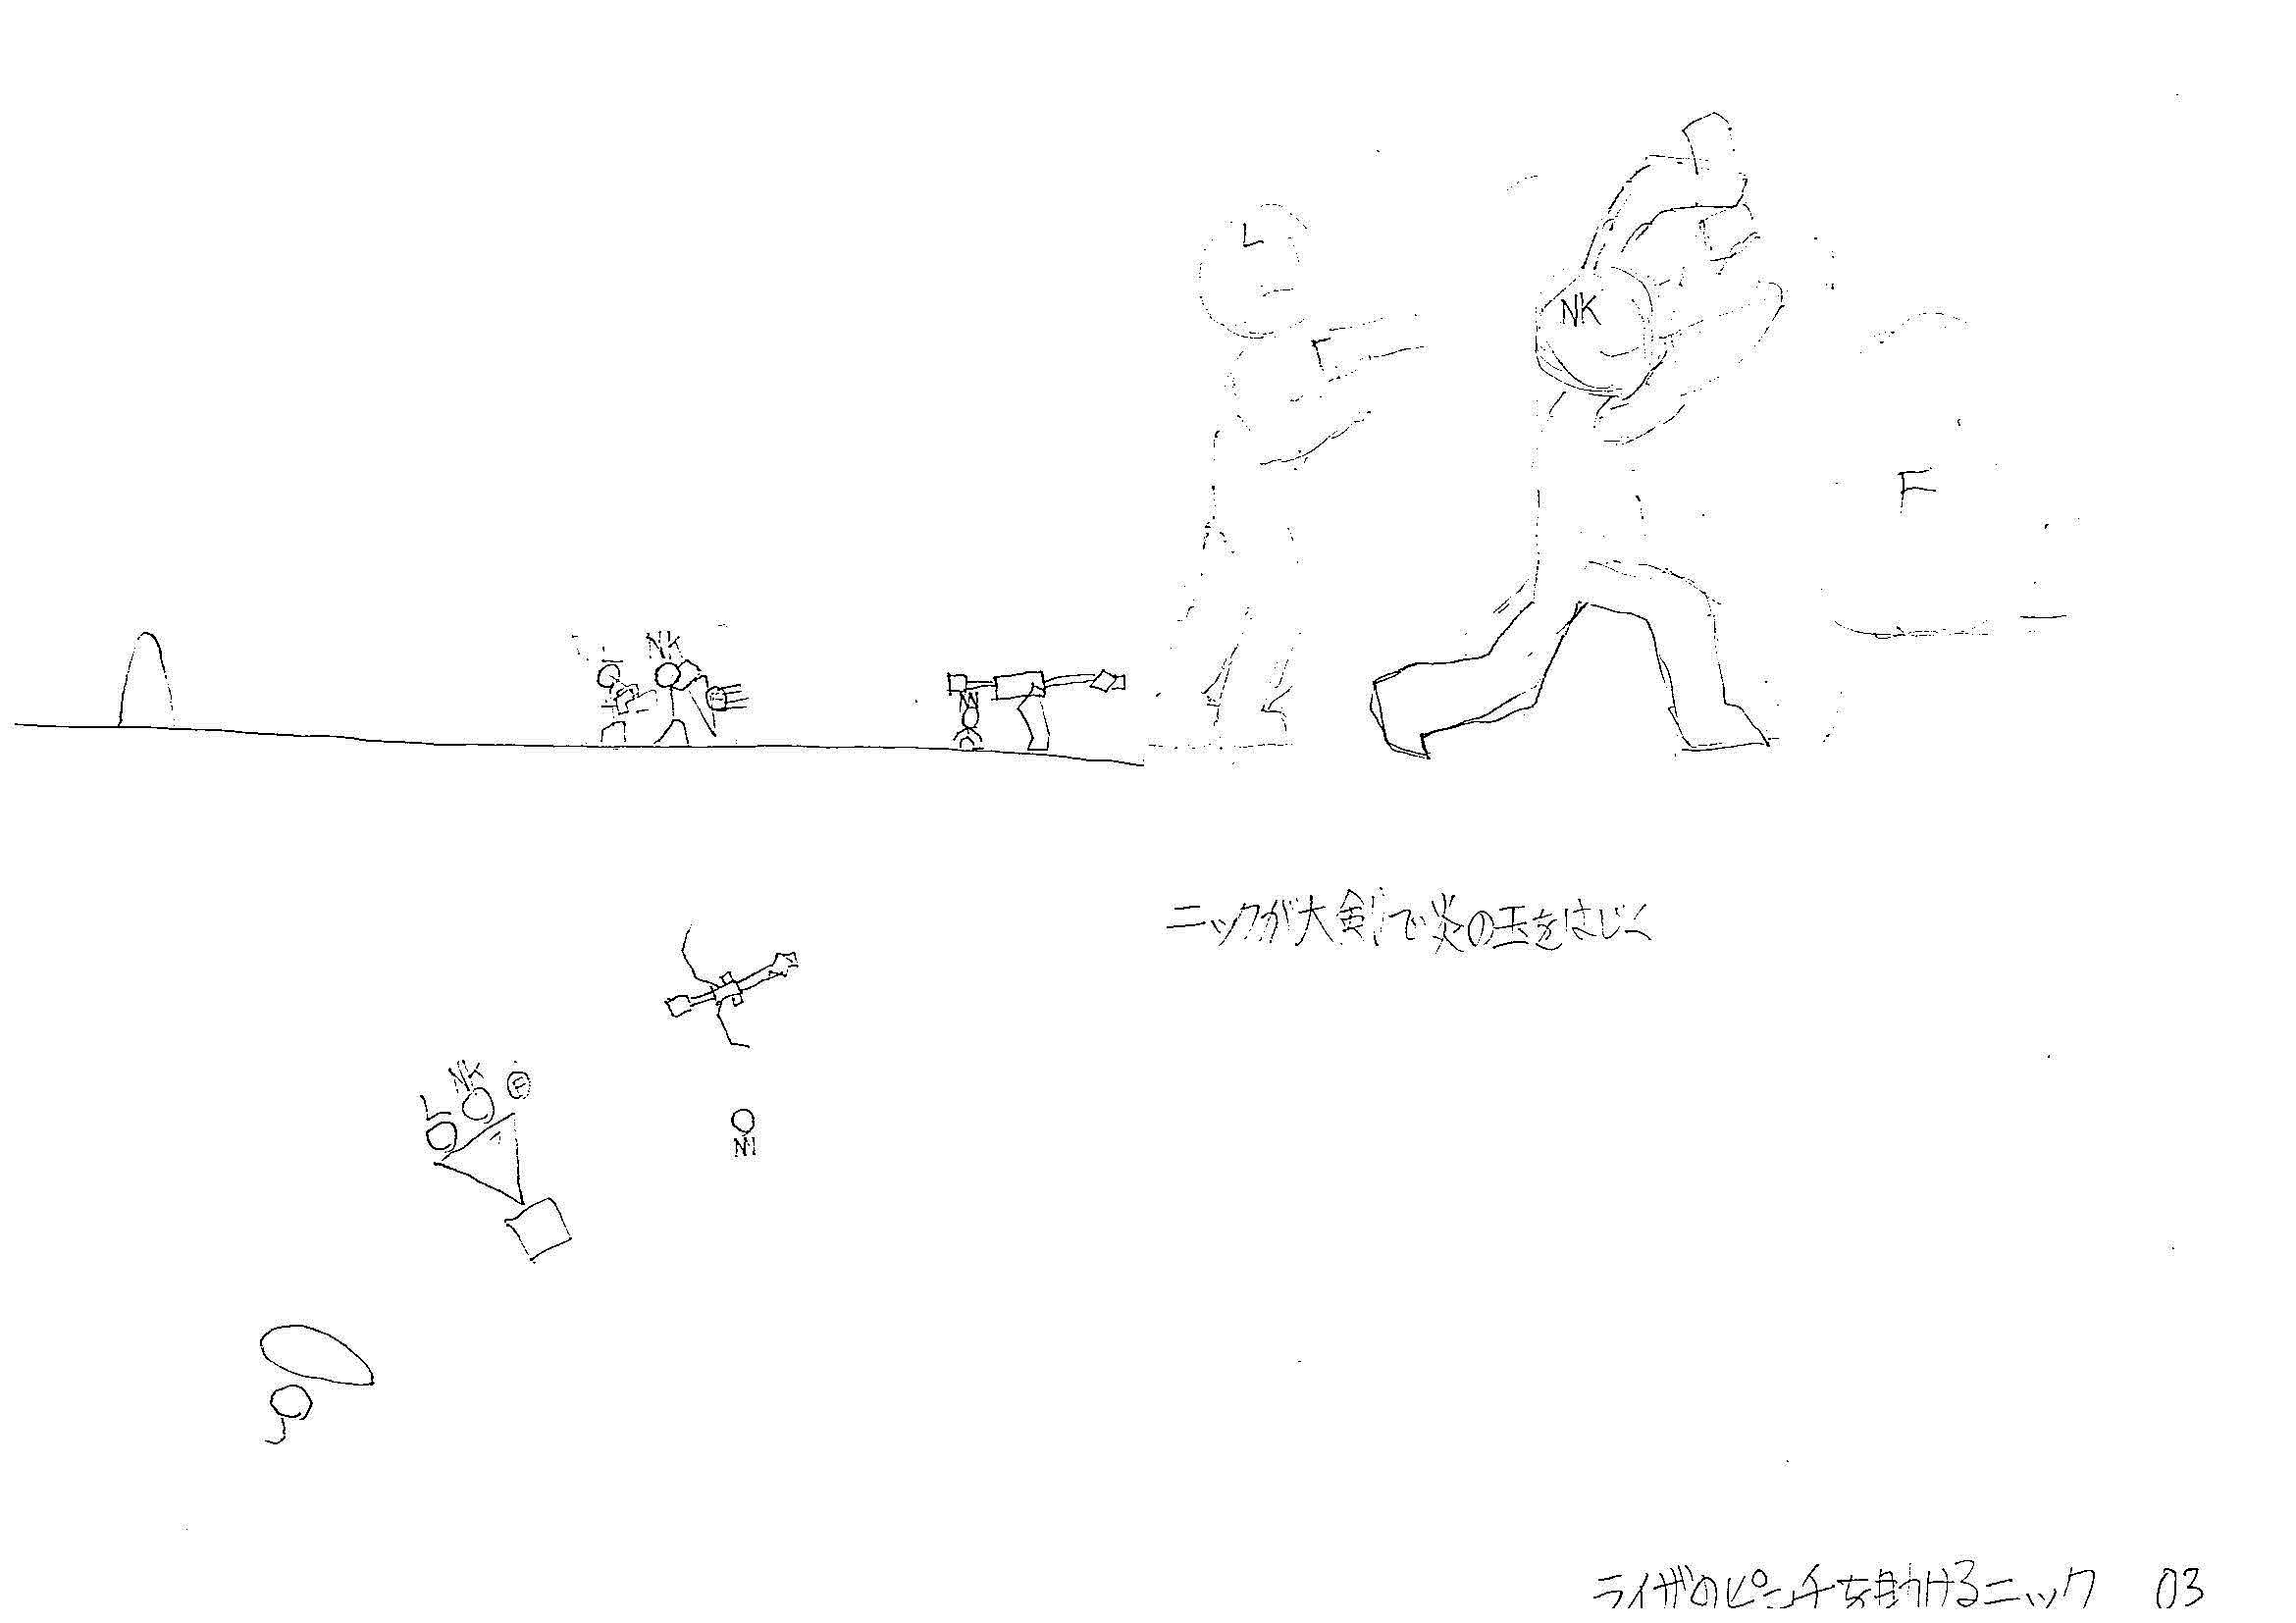 L
NK
F
NK
N
ニックが大剣で炎の玉をはじく
NK
F
L
NI
ライザのピンチを助けるニック 03